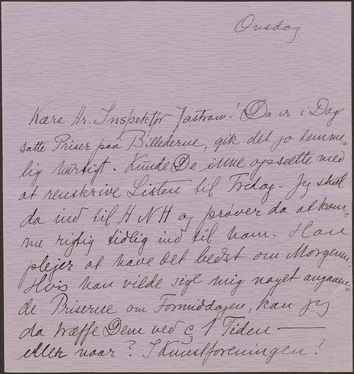 Onsdag
Kære Hr. Inspektør Jastrau! Da vi i Dag
satte Priser paa Billederne, gik det jo temme-
lig hurtigt. Kunde De ikke opsætte med
at renskrive Listen til Fredag. Jeg skal
da ind til H N H og prøver da at kom-
me rigtig tidlig ind til ham. Han
plejer at have det bedst om Morgenen.
Hvis han vilde sige mig noget angaaen-
de Priserne om Formiddagen, kan jeg
da træffe Dem ved 1 Tiden —
eller naar? I Kunstforeningen!